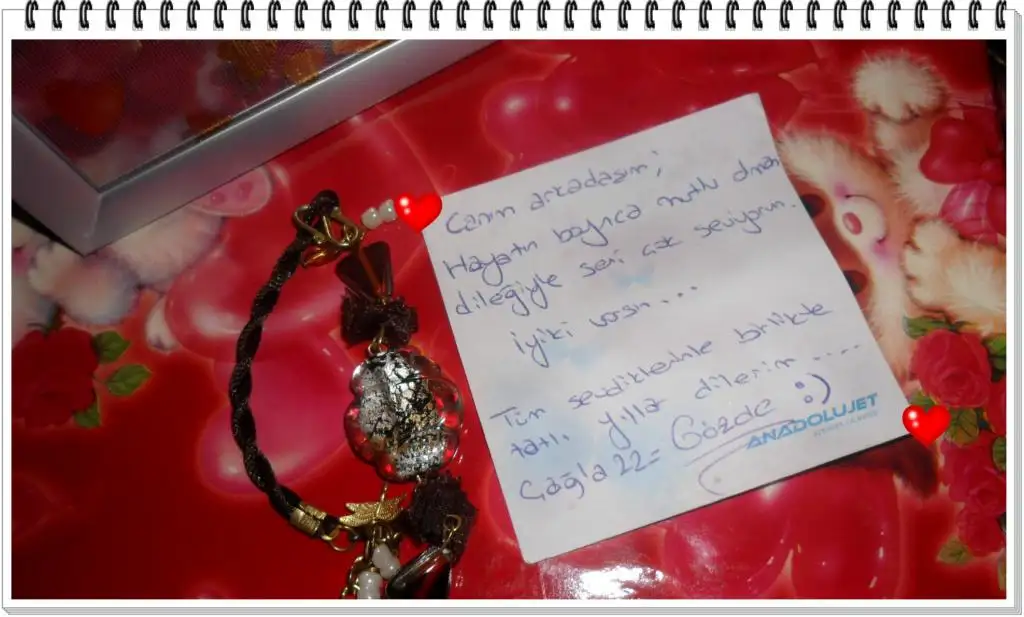 Canım arkadaşım;
Hayatın boyunca mutlu olman
dileğiyle seni çok seviyorum.
iyiki varsın...
Tüm sevdiklerinle birlikte
tatlı yıllar dilerim....
Çağla 22= Gözde :)
ANADOLUJET